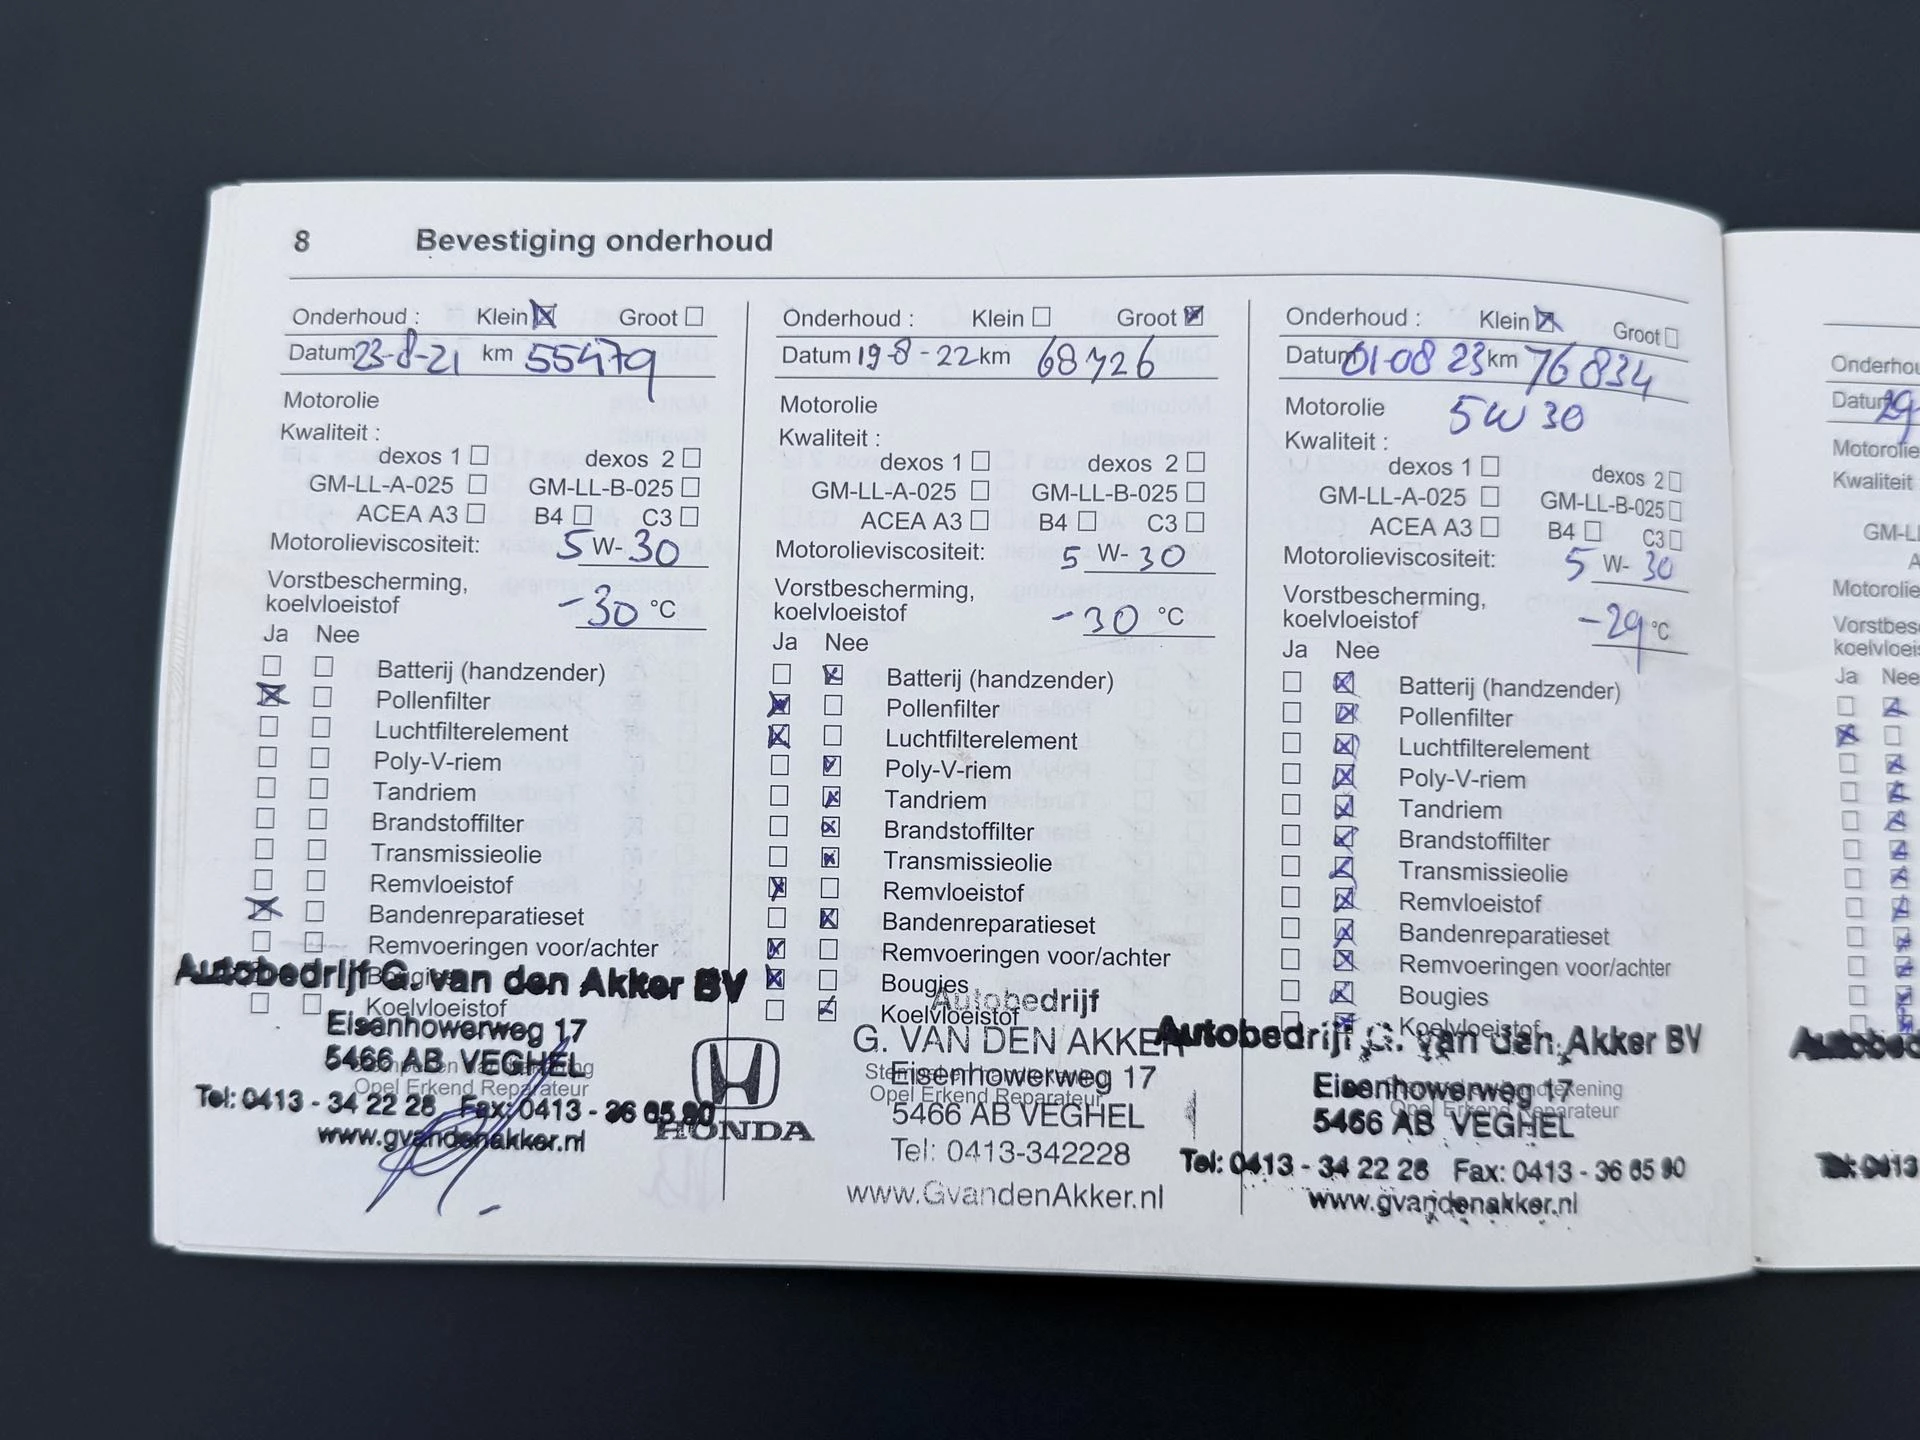 8 Bevestiging onderhoud
Onderhoud : Klein Groot
Datum 23-8-21 km 55479
Motorolie
Kwaliteit :
dexos 1 dexos 2
GM-LL-A-025 GM-LL-B-025
ACEA A3 B4 C3
Motorolieviscositeit: 5 W- 30
Vorstbescherming,
koelvloeistof -30 °C
Ja Nee
Batterij (handzender)
Pollenfilter
Luchtfilterelement
Poly-V-riem
Tandriem
Brandstoffilter
Transmissieolie
Remvloeistof
Bandenreparatieset
Remvoeringen voor/achter
Bougies
Autobedrijf G. van den Akker BV
Koelvloeistof
Eisenhowerweg 17
5466 AB VEGHEL
Opel Erkend Reparateur
Tel: 0413 - 34 22 28 Fax: 0413 - 36 65 90
www.gvandenakker.nl
Onderhoud : Klein Groot
Datum 19-8-22 km 68726
Motorolie
Kwaliteit :
dexos 1 dexos 2
GM-LL-A-025 GM-LL-B-025
ACEA A3 B4 C3
Motorolieviscositeit: 5 W- 30
Vorstbescherming,
koelvloeistof -30 °C
Ja Nee
Batterij (handzender)
Pollenfilter
Luchtfilterelement
Poly-V-riem
Tandriem
Brandstoffilter
Transmissieolie
Remvloeistof
Bandenreparatieset
Remvoeringen voor/achter
Bougies
Autobedrijf
Koelvloeistof
G. VAN DEN AKKER
Eisenhowerweg 17
Opel Erkend Reparateur
5466 AB VEGHEL
HONDA
Tel: 0413-342228
www.GvandenAkker.nl
Onderhoud : Klein Groot
Datum 01-08 23 km 76834
Motorolie 5W30
Kwaliteit :
dexos 1 dexos 2
GM-LL-A-025 GM-LL-B-025
ACEA A3 B4 C3
Motorolieviscositeit: 5 W- 30
Vorstbescherming,
koelvloeistof -29 °C
Ja Nee
Batterij (handzender)
Pollenfilter
Luchtfilterelement
Poly-V-riem
Tandriem
Brandstoffilter
Transmissieolie
Remvloeistof
Bandenreparatieset
Remvoeringen voor/achter
Bougies
Koelvloeistof
Autobedrijf G. van den Akker BV
Eisenhowerweg 17
5466 AB VEGHEL
Opel Erkend Reparateur
Tel: 0413 - 34 22 28 Fax: 0413 - 36 65 90
www.gvandenakker.nl
Onderhou
Datum
Motorolie
Kwaliteit
GM-LL
A
Motorolie
Vorstbes
koelvloeis
Ja Nee
Autobed
0413